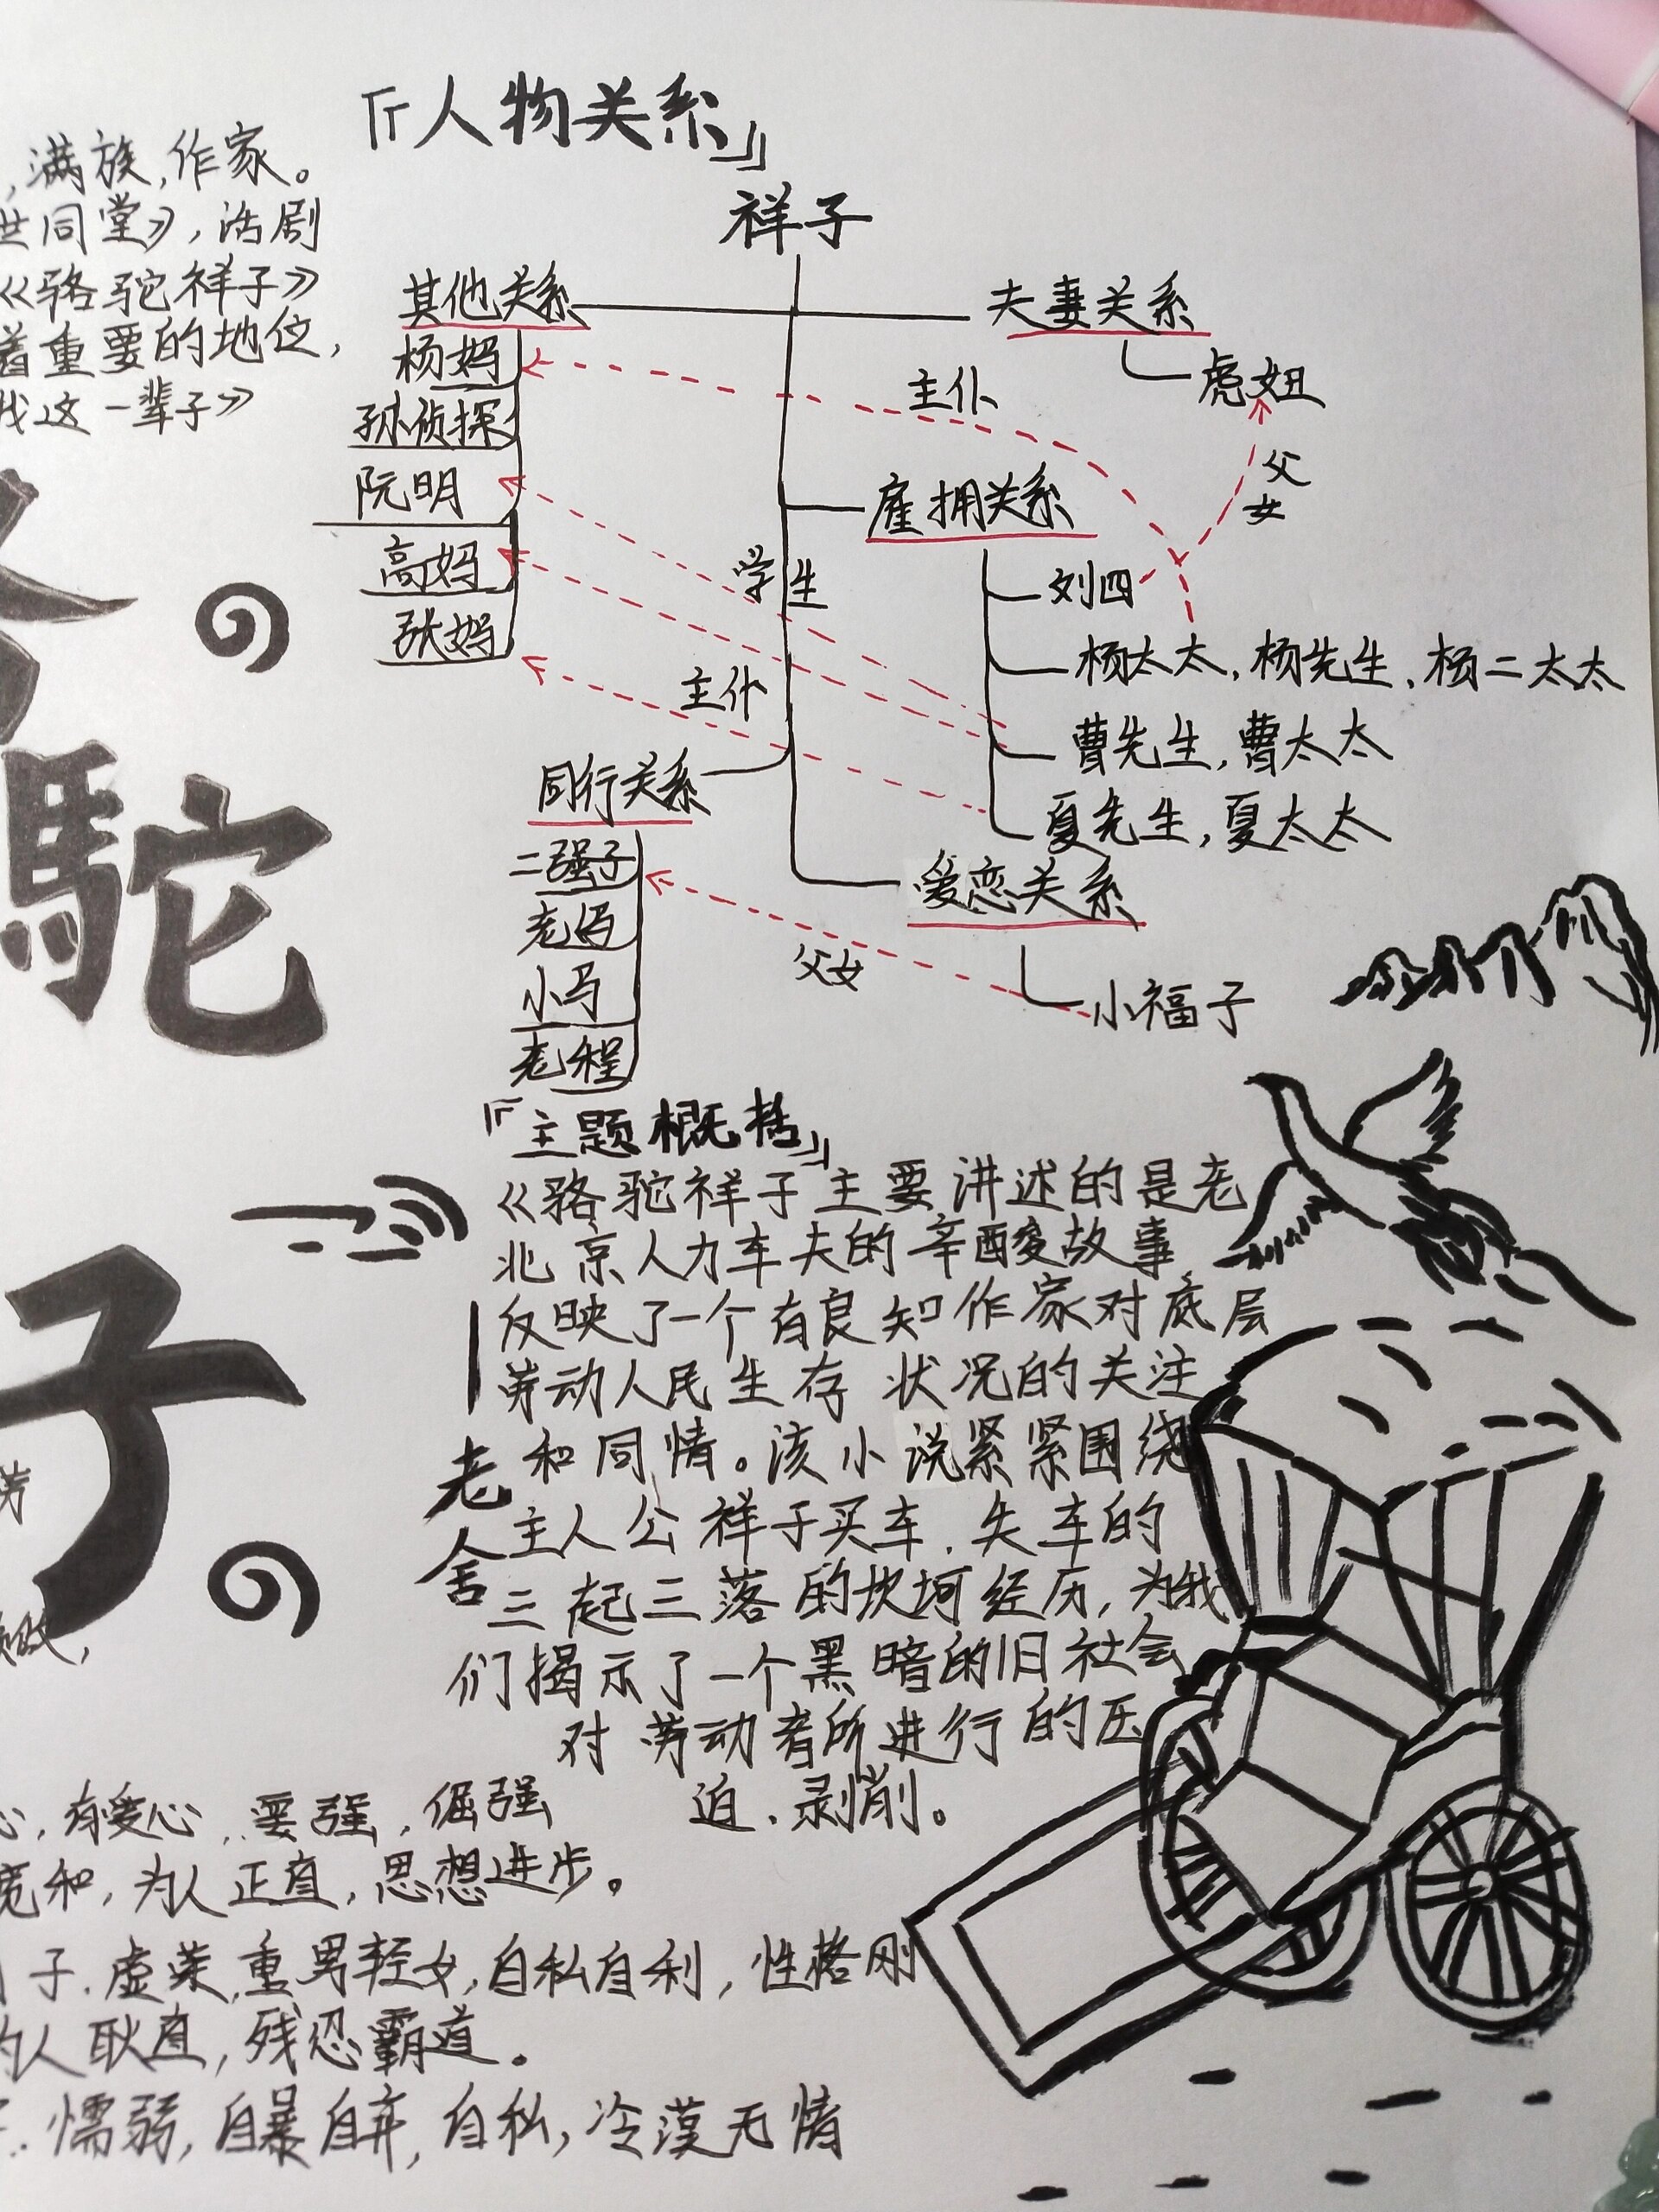 『人物关系』
祥子
其他关系
杨妈
孙侦探
阮明
高妈
张妈
夫妻关系
虎妞
主仆
父女
雇拥关系
刘四
杨太太,杨先生,杨二太太
曹先生,曹太太
夏先生,夏太太
学生
主仆
同行关系
二强子
老马
小马
老程
爱恋关系
小福子
父女
,满族,作家。
世同堂》,话剧
《骆驼祥子》
着重要的地位,
我这一辈子》
駝
子。
『主题概括』
《骆驼祥子主要讲述的是老
北京人力车夫的辛酸故事,
反映了一个有良知作家对底层
劳动人民生存状况的关注
和同情。该小说紧紧围绕
主人公祥子买车.失车的
三起三落的坎坷经历,为我
们揭示了一个黑暗的旧社会
对劳动者所进行的压
迫.剥削。
—老舍
心,有爱心,要强,倔强
宽和,为人正直,思想进步。
子.虚荣,重男轻女,自私自利,性格刚
为人耿直,残忍霸道。
懦弱,自暴自弃,自私,冷漠无情